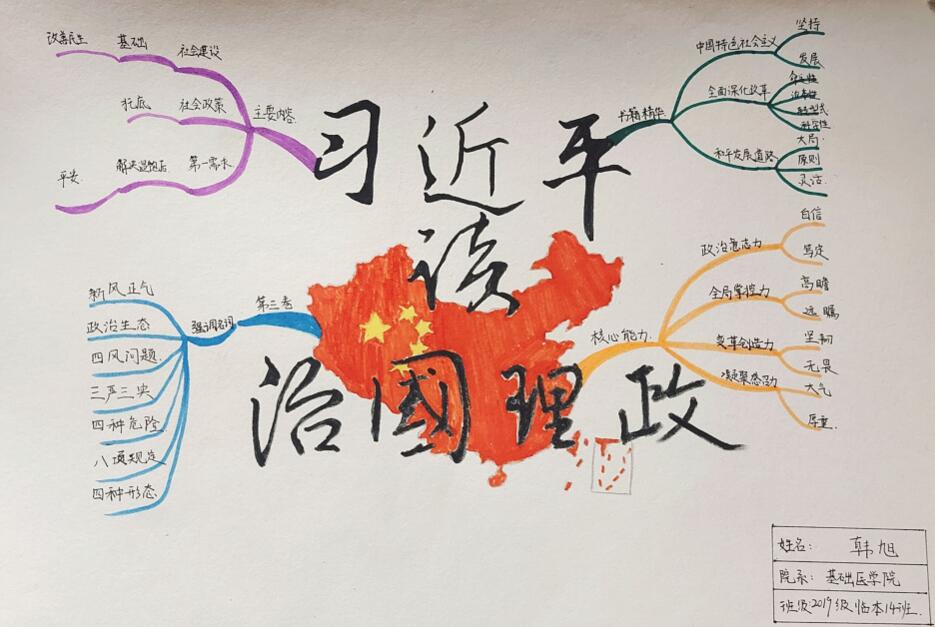 习近平
读
治國理政
主要内容
社会建设
基础
改善民生
社会政策
托底
第一需求
解决温饱后
平安
书籍精华
中国特色社会主义
坚持
发展
全面深化改革
和平发展道路
大局
原则
灵活
第三卷
强调名词
新风正气
政治生态
四风问题
三严三实
四种危险
八项规定
四种形态
核心能力
政治意志力
自信
笃定
全局掌控力
高瞻
远瞩
变革创造力
坚韧
无畏
大气
厚重
姓名: 韩旭
院系: 基础医学院
班级:2019级临本14班